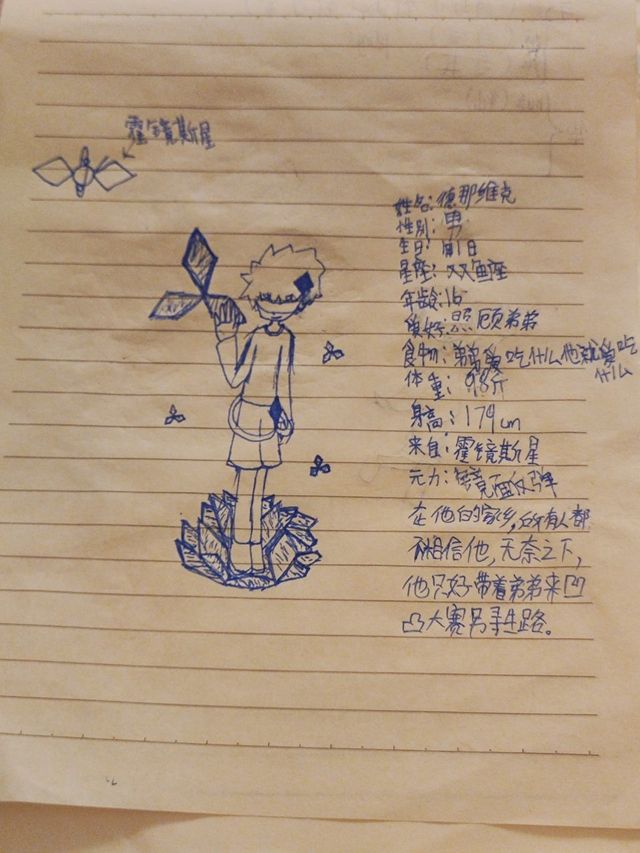 霍镜斯星
姓名:德那维克
性别:男
生日:1月1日
星座:双鱼座
年龄:16
爱好:照顾弟弟
食物:弟弟爱吃什么他就爱吃
什么
体重:98斤
身高:179cm
来自:霍镜斯星
元力:镜面反弹
在他的家乡,所有人都
不相信他,无奈之下,
他只好带着弟弟来凹
凸大赛另寻生路。